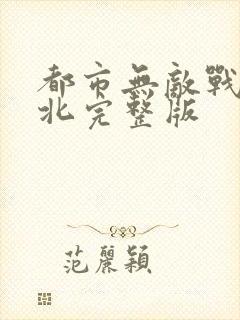 都市無敵戰
北完整版
范麗穎